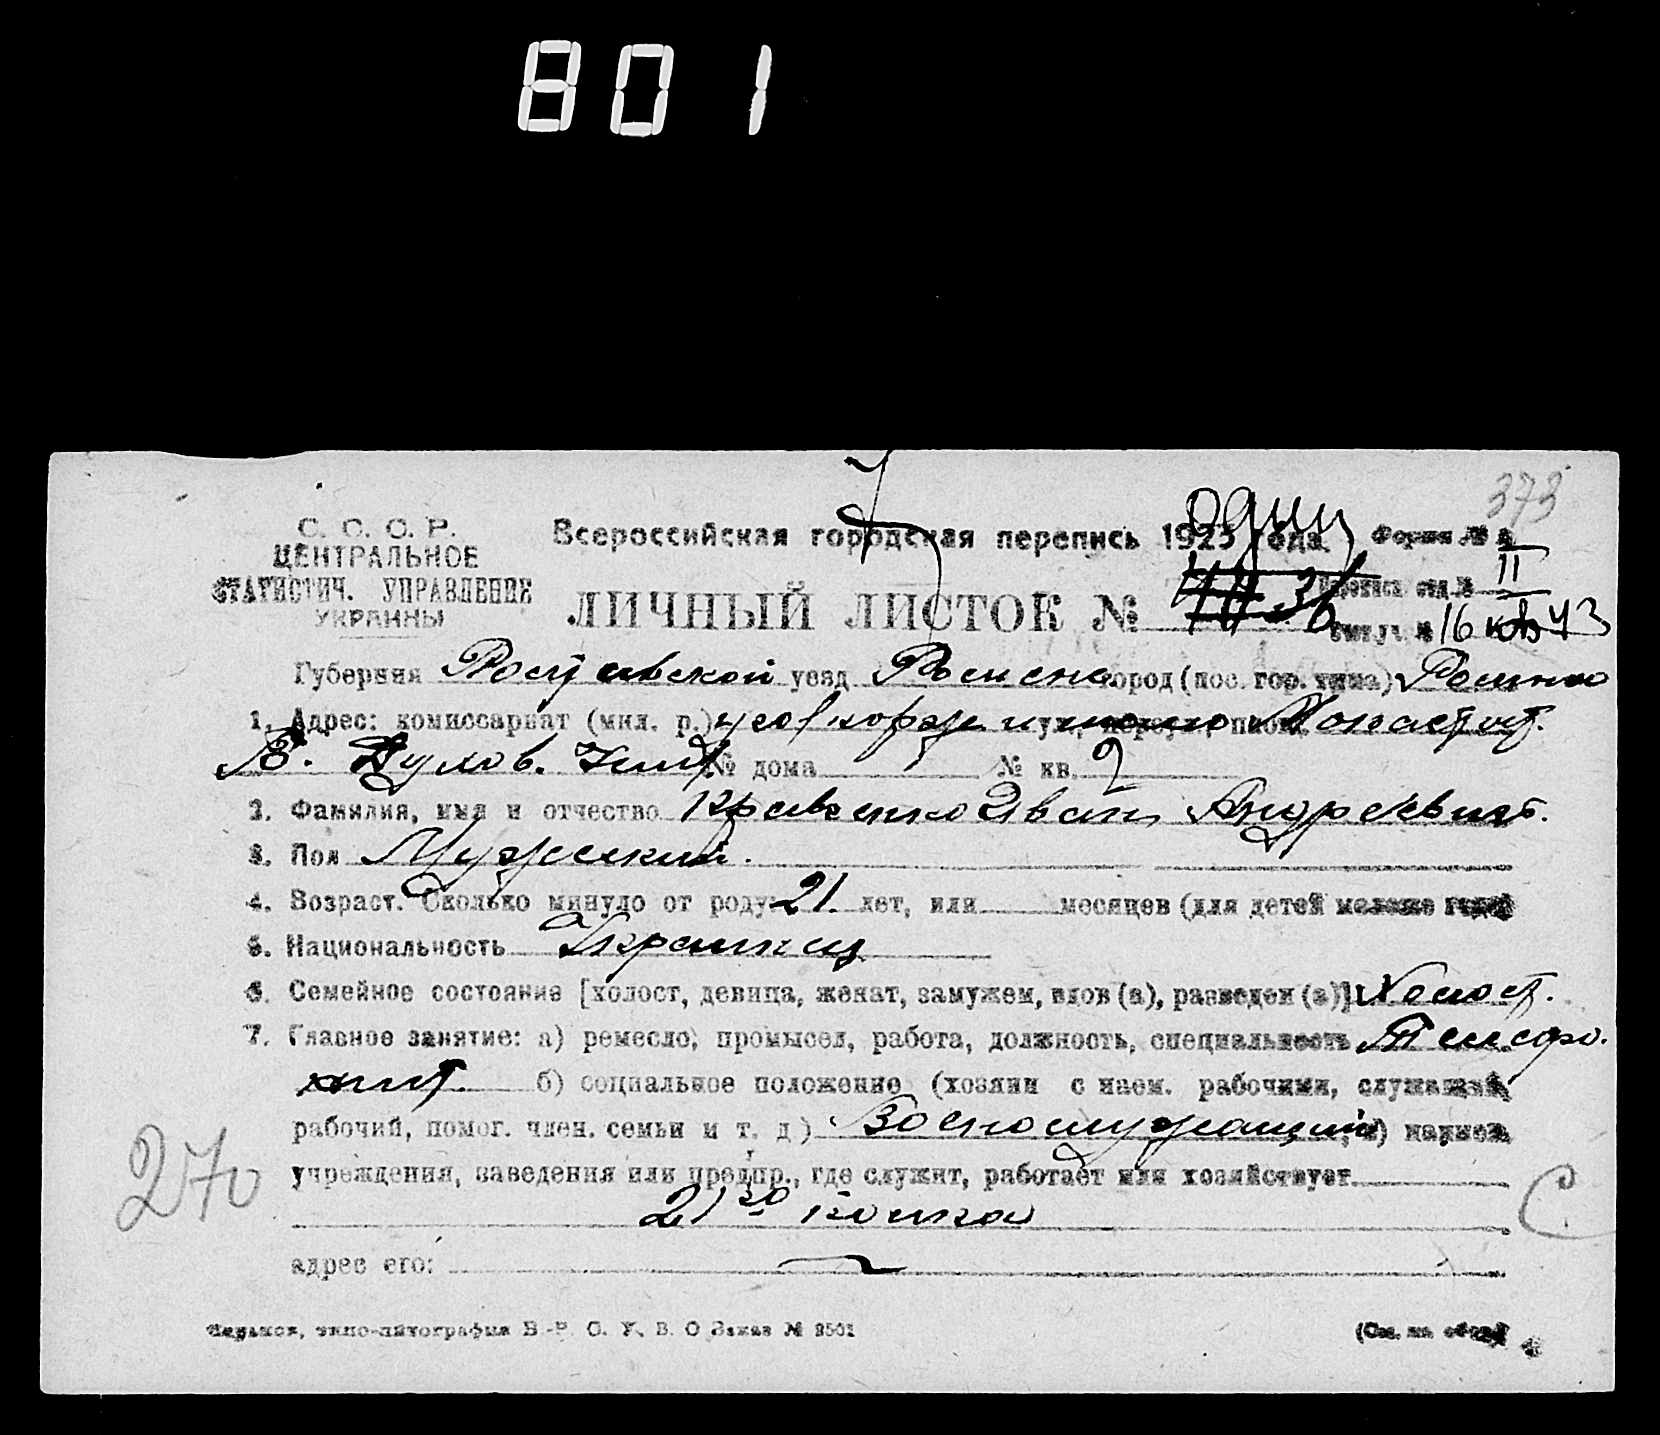 801
373
С. С. С. Р.
ЦЕНТРАЛЬНОЕ
СТАТИСТИЧ. УПРАВЛЕНИЕ
УКРАИНЫ
Всероссийская городская перепись 1923 года. Форма № II
ЛИЧНЫЙ ЛИСТОК № 16 кв 43
Губерния уезд город (пос. гор. типа)
1. Адрес: комиссариат (мил. р.)
№ дома № кв. 2
2. Фамилия, имя и отчество Кравченко Иван Андреевич.
3. Пол Мужеский.
4. Возраст. Сколько минуло от роду 21 лет, или месяцев (для детей моложе года)
5. Национальность Украинец
6. Семейное состояние [холост, девица, женат, замужем, вдов (а), разведен (а)] Холост.
7. Главное занятие: а) ремесло, промысел, работа, должность, специальность Телефо-
нист. б) социальное положение (хозяин с наем. рабочими, служащий
рабочий, помог. член. семьи и т. д.) Военнослужащий в) наимен.
учреждения, заведения или предпр., где служит, работает или хозяйствует
270
адрес его:
типо-литография В.-Р. С. У. В. О. Заказ № 3501 (См. на обор.)